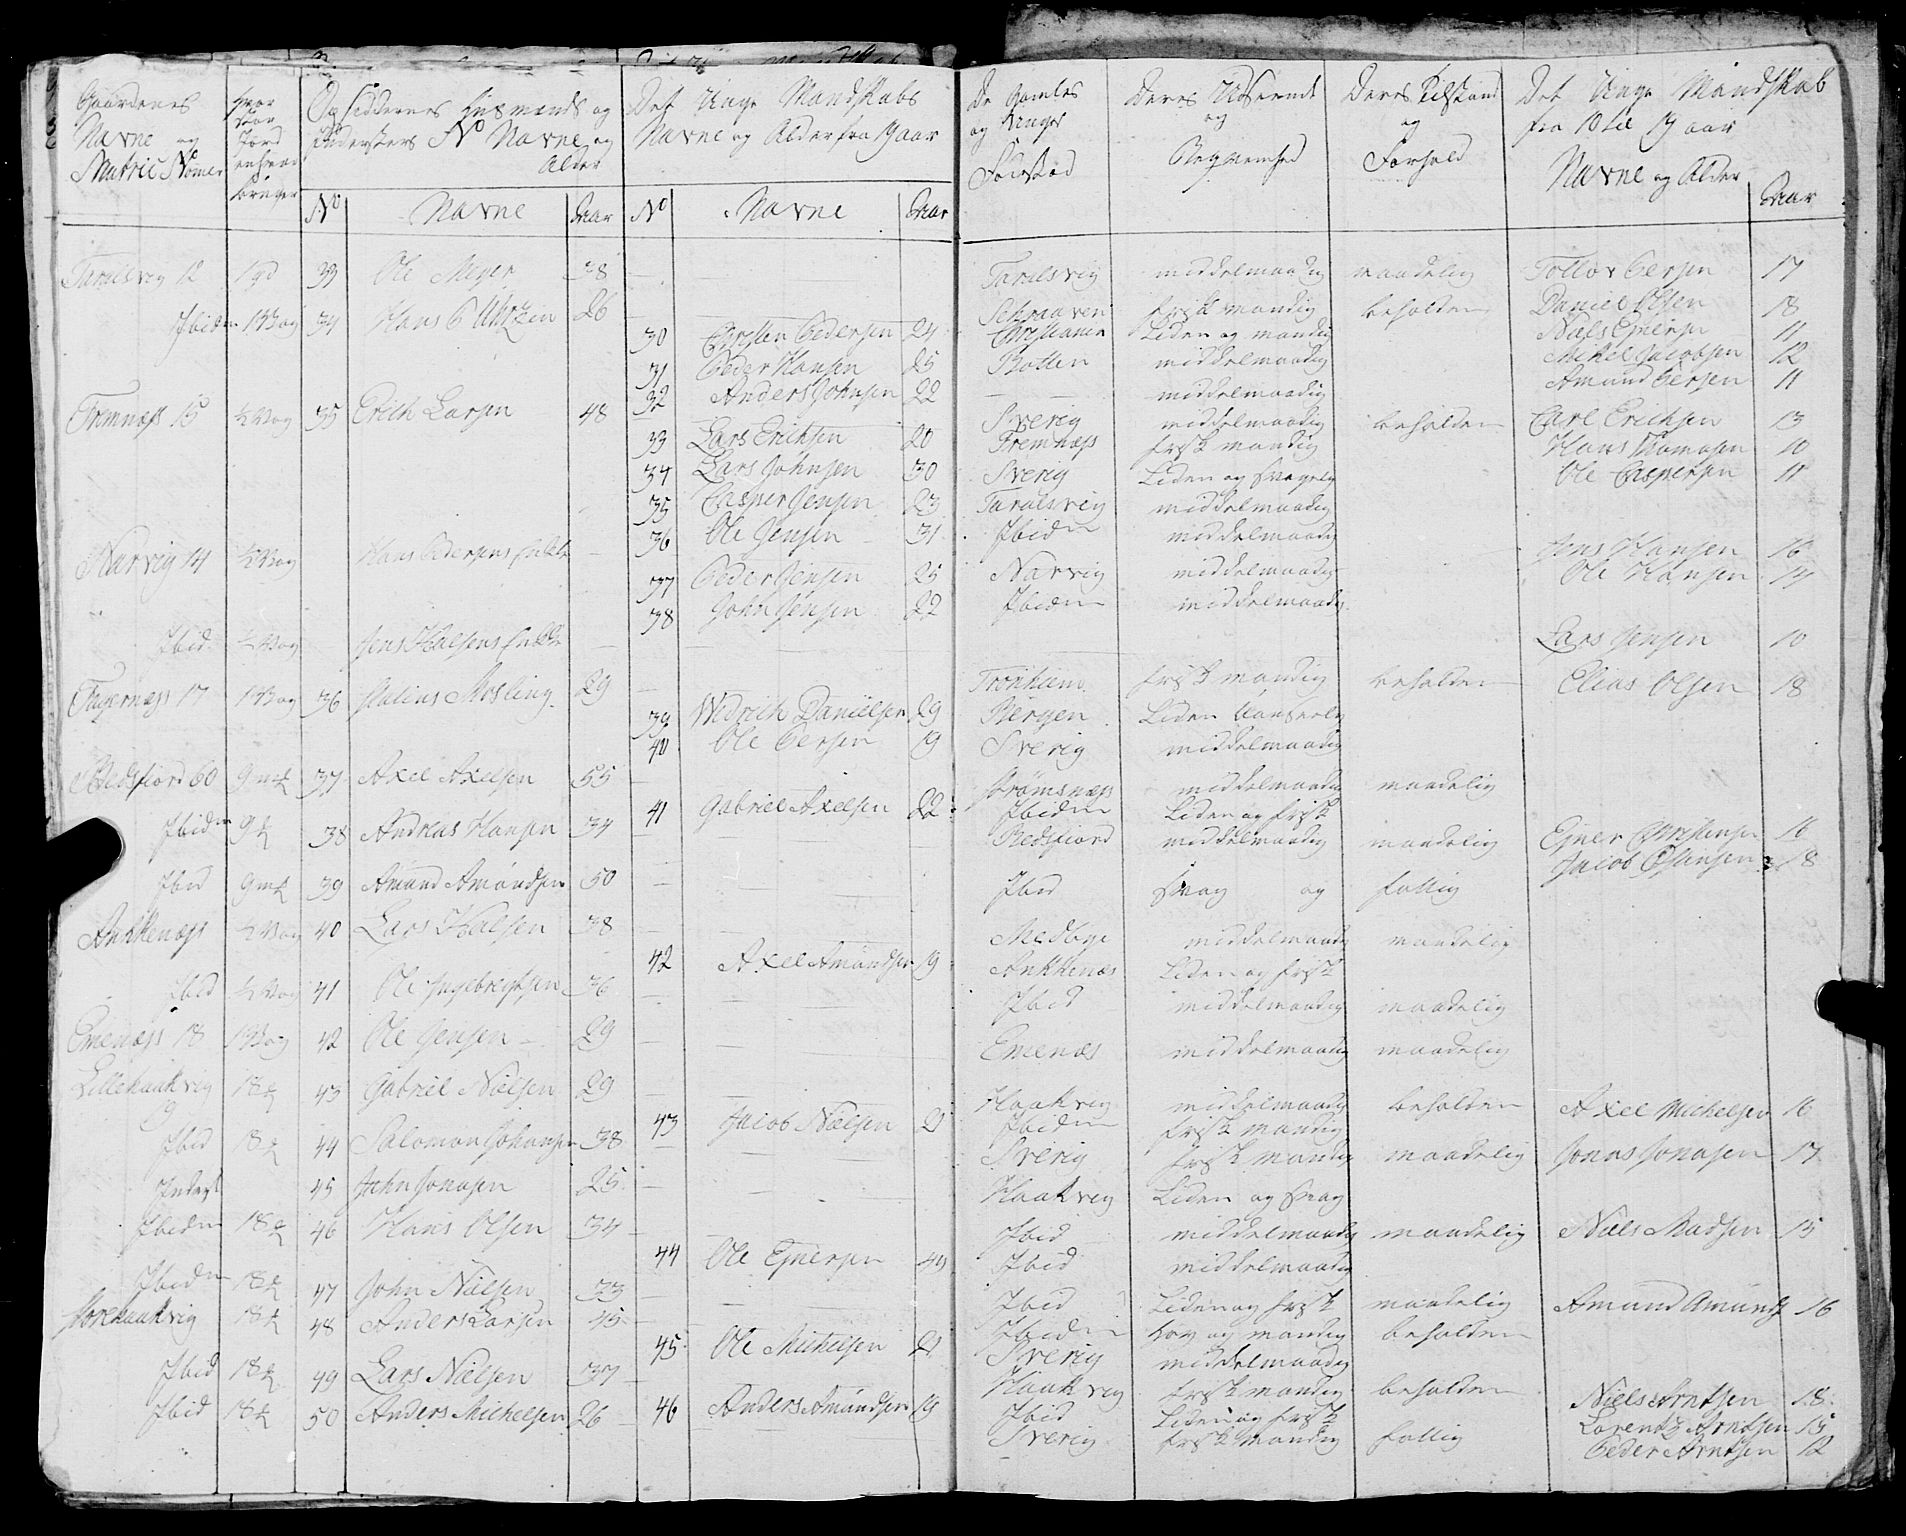 Gaardenes Navne og Matric Nomer | Hvor stor Jord enhver bruger | Opsiddernes Huusmænds og Indersters No Navne og Alder | Det Unge Mandskabs Navne og Alder fra 19 aar | De Gamles og Unges Fødestæd | Deres Udseende og Beqvemhed | Deres Tilstand og Forhold | Det Unge Mandskab fra 10 til 19 aar Navne og Alder
No | Navne | Aar | No | Navne | Aar | Aar
Taralsvig 12 | 1 pd | 33 | Ole Meyer | 38 | Taralsvig | middelmaadig | maadelig | Tollov Persen | 17
Ibidm | 1 Wog | 34 | Hans | 26 | frisk mandig | beholden | Daniel Olsen | 18
30 | Christen Pedersen | 24 | Christiania | Liden og mandig | Niels Ejnersen | 11
31 | Peder Hansen | 25 | Botten | middelmaadig | Mikel Jacobsen | 12
32 | Anders Johnsen | 22 | middelmaadig | Amund Persen | 11
Fremnæss 15 | ½ Wog | 35 | Erich Larsen | 48 | Sverig | middelmaadig | beholden | Carl Erichsen | 13
33 | Lars Erichsen | 20 | Fremnæss | frisk mandig | Hans Thomasen | 10
34 | Lars Johnsen | 30 | Sverig | Liden og svagelig | Ole Caspersen | 11
35 | Casper Jensen | 23 | Taralsvig | middelmaadig
36 | Ole Jensen | 31 | Ibidm | middelmaadig
Narvig 14 | ½ Wog | Hans Pedersens Enke | Jens Hansen | 16
37 | Peder Jensen | 25 | Narvig | middelmaadig | Ole Hansen | 14
38 | John Jensen | 22 | Ibidm | middelmaadig
Ibid | ½ Wog | Jens Halsens Enke | Lars Jensen | 10
Fagernæss 17 | 1 Wog | 36 | Paulius Mosling | 29 | Tronhiem | frisk mandig | beholden | Elias Olsen | 18
39 | Widrich Danielsen | 29 | Bergen | Liden
40 | Ole Persen | 19 | Sverig | middelmaadig
Bedsfiord 60 | 9 mk | 37 | Axel Axelsen | 55 | Strømsnæss | middelmaadig | maadelig
41 | Gabriel Axelsen | 22 | Ibidm | Liden og frisk
Ibidm | 9 | 38 | Andreas Hansen | 34 | Bedsfiord | middelmaadig | maadelig | Ejner Christensen | 16
Jacob | 18
Ibid | 9 mk | 39 | Amund Amundsen | 50 | Ibid | svag og | fattig
Ankkenæss | ½ Wog | 40 | Lars Halsen | 38 | Medbye | middelmaadig | maadelig
42 | Axel Amundsen | 19 | Ankkenæs | Liden og frisk
Ibid | ½ Wog | 41 | Ole Ingebregtsen | 36 | Ibid | middelmaadig | maadelig
Emenæss 18 | 1 Wog | 42 | Ole Jensen | 29 | Emenæs | middelmaadig | maadelig
Lillehaakvig 19 | 18 | 43 | Gabriel Nielsen | 29 | Haakvig | middelmaadig | beholden | Axel Michelsen | 16
43 | Jacob Nielsen | 21 | Ibidm | frisk mandig
Ibid | 18 | 44 | Salomon Johansen | 38 | Sverig | frisk mandig | maadelig | Jonas Jonasen | 17
Inderst | 45 | John Jonasen | 25 | Haakvig | Liden og svag
Ibidm | 18 | 46 | Hans Olsen | 34 | Ibid | middelmaadig | maadelig | Niels Madsen | 15
44 | Ole Ejnersen | 44 | Ibid | middelmaadig
Ibidm | 18 | 47 | John Nielsen | 33 | Ibid | Liden og frisk | maadelig | Amund Amunds | 16
Storehaakvig | 18 | 48 | Anders Larsen | 45 | Ibidm | Lov og mandig | beholden
45 | Ole Michelsen | 21 | Sverig | middelmaadig
Ibid | 18 | 49 | Lars Nielsen | 37 | Haakvig | frisk mandig | beholden | Niels Arntsen | 18
46 | Anders Amundsen | 19 | Ibid | Liden og frisk | Lorentz Arntsen | 15
Ibid | 18 | 50 | Anders Michelsen | 26 | Sverig | frisk mandig | fattig | Peder Arntsen | 12